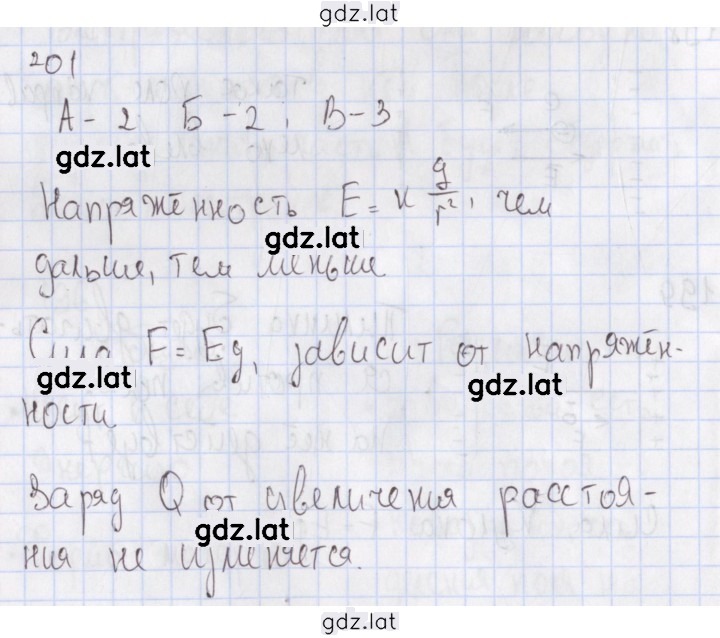 gdz.lat
201
А - 2 Б - 2, В - 3
gdz.lat
Напряжённость E = к q/r², чем
gdz.lat
дальше, тем меньше
Сила F = Eq, зависит от напряжён-
gdz.lat
ности
Заряд Q от увеличения расстоя-
gdz.lat
ния не изменяется.
gdz.lat